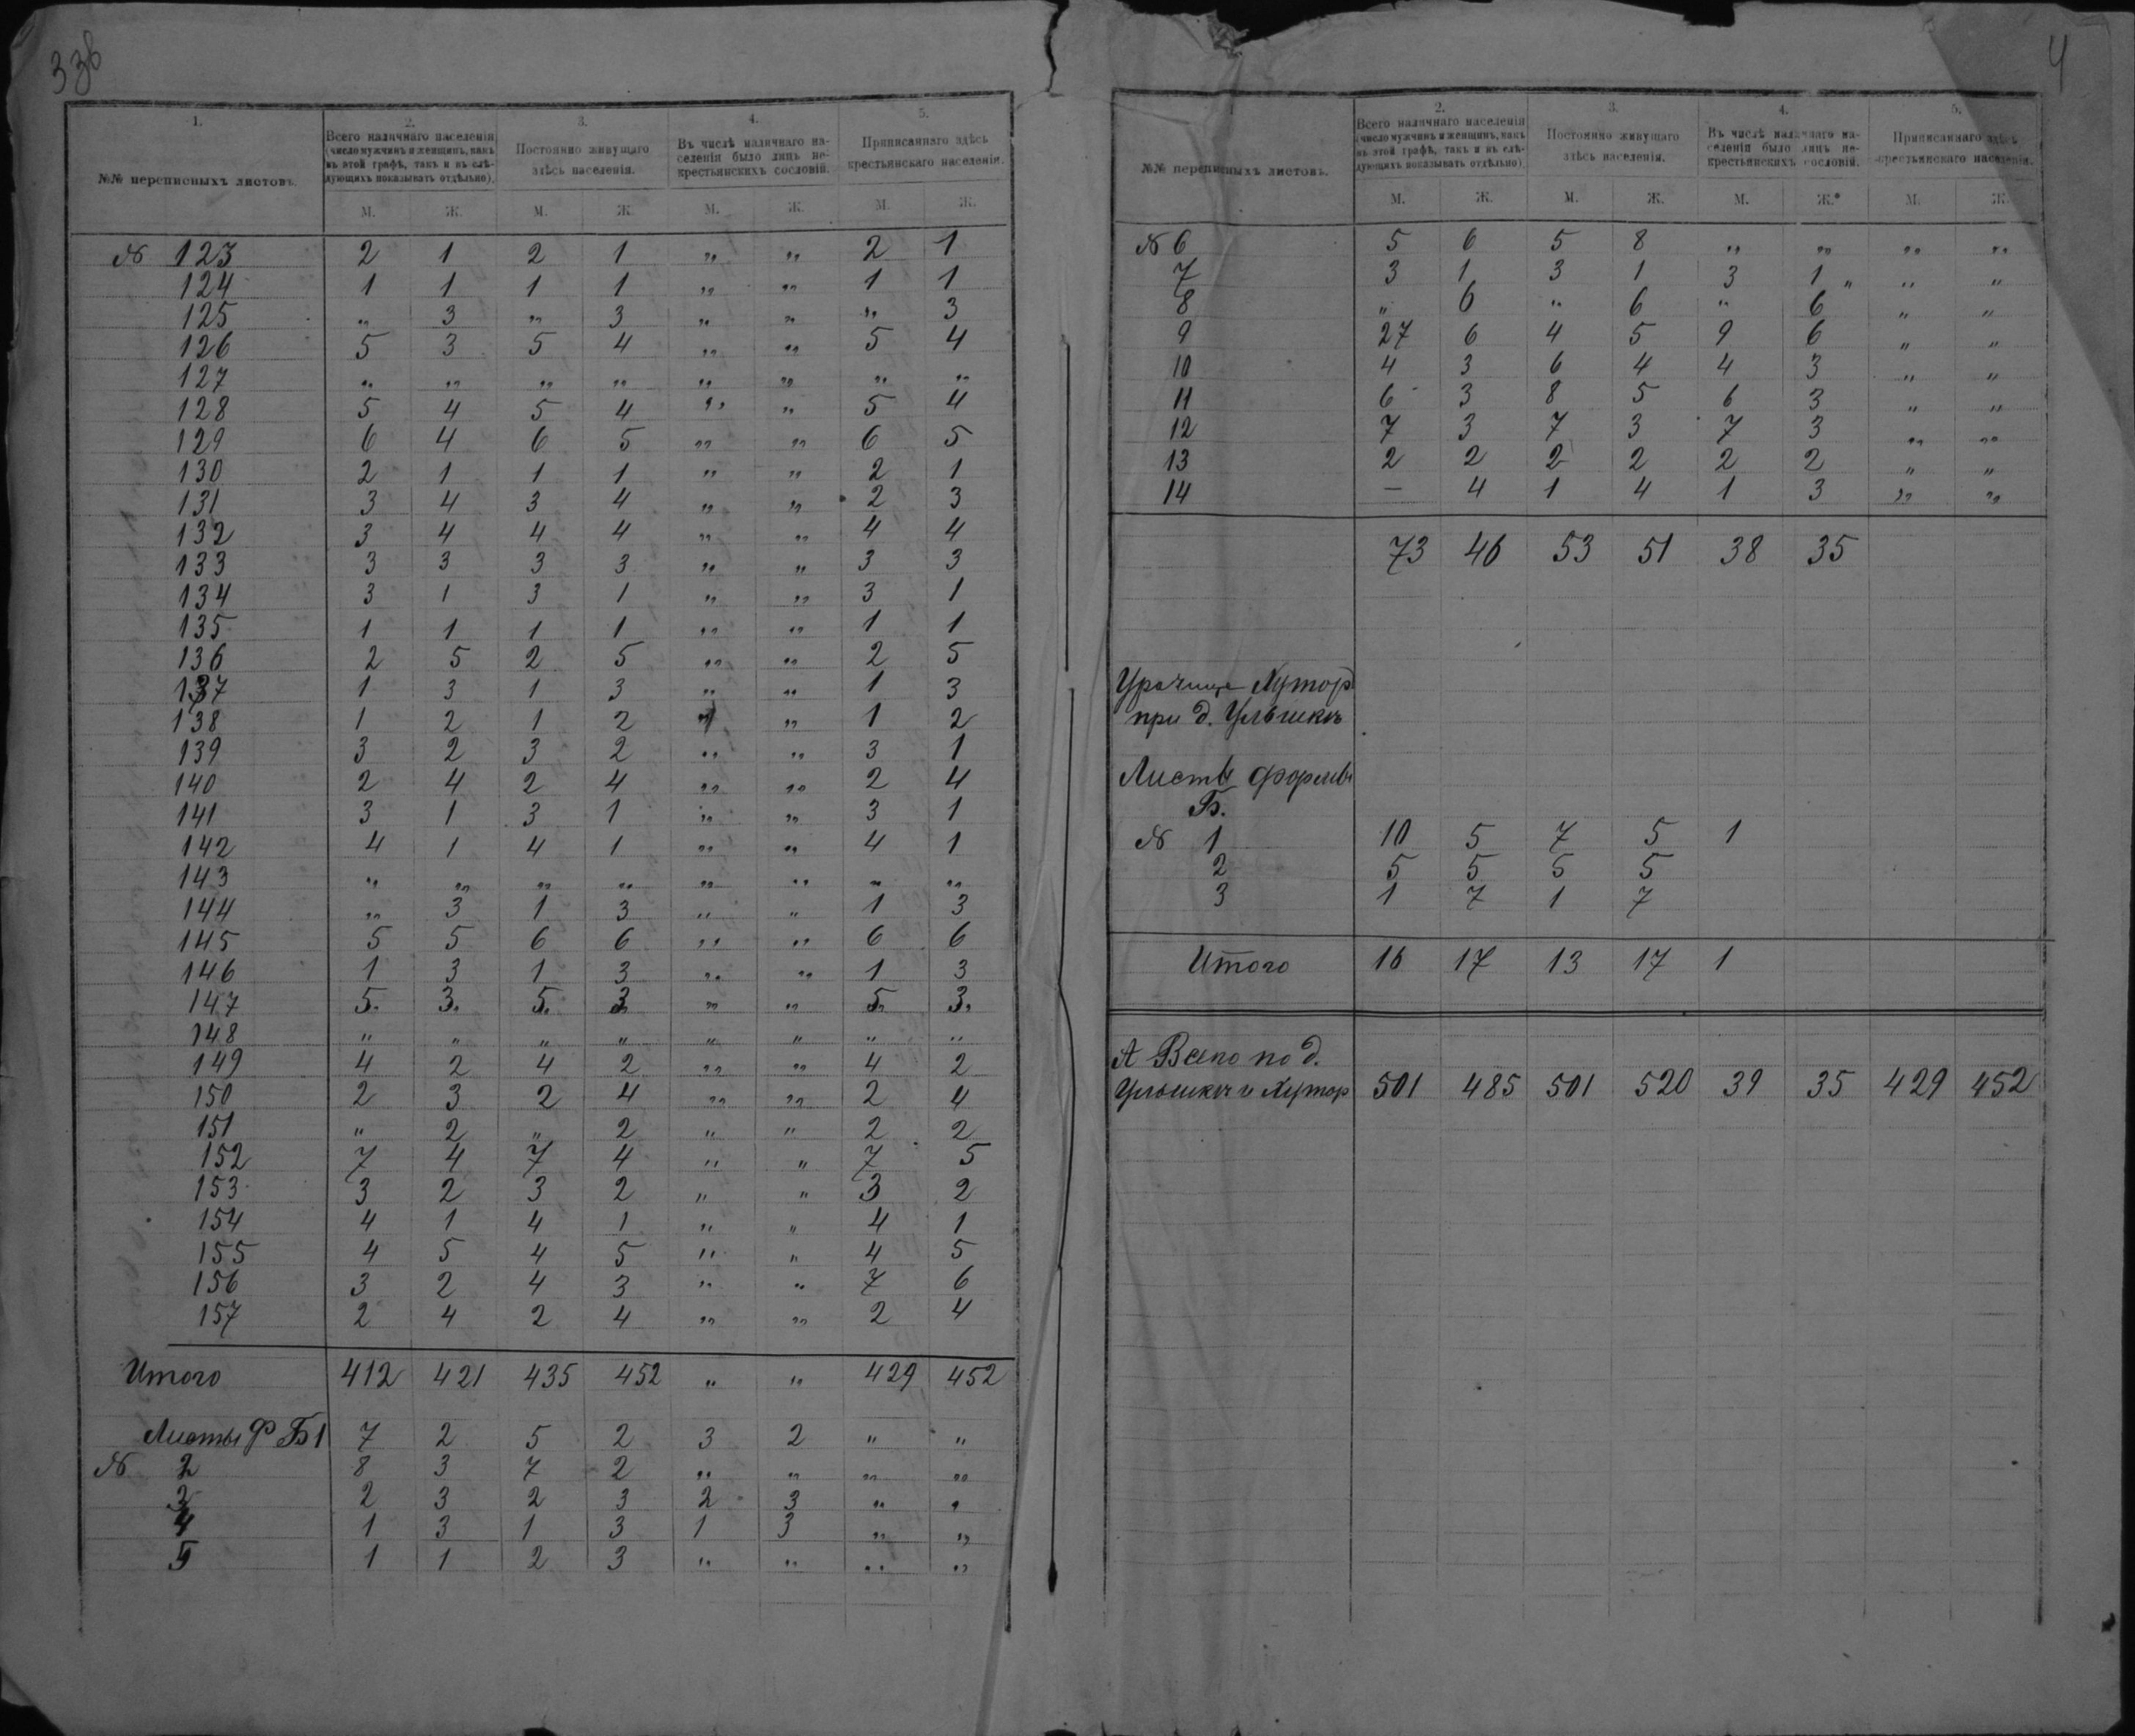 336
1. 2. 3. 4. 5.
№№ переписныхъ листовъ.
Всего наличнаго населенія (число мужчинъ и женщинъ, какъ въ этой графѣ, такъ и въ слѣдующихъ показывать отдѣльно).
Постоянно живущаго здѣсь населенія.
Въ числѣ наличнаго населенія было лицъ некрестьянскихъ сословій.
Приписаннаго здѣсь крестьянскаго населенія.
М. Ж. М. Ж. М. Ж. М. Ж.
№ 123 2 1 2 1 „ „ 2 1
124 1 1 1 1 „ „ 1 1
125 „ 3 „ 3 „ „ „ 3
126 5 3 5 4 „ „ 5 4
127 „ „ „ „ „ „ „ „
128 5 4 5 4 „ „ 5 4
129 6 4 6 5 „ „ 6 5
130 2 1 1 1 „ „ 2 1
131 3 4 3 4 „ „ 2 3
132 3 4 4 4 „ „ 4 4
133 3 3 3 3 „ „ 3 3
134 3 1 3 1 „ „ 3 1
135 1 1 1 1 „ „ 1 1
136 2 5 2 5 „ „ 2 5
137 1 3 1 3 „ „ 1 3
138 1 2 1 2 „ „ 1 2
139 3 2 3 2 „ „ 3 1
140 2 4 2 4 „ „ 2 4
141 3 1 3 1 „ „ 3 1
142 4 1 4 1 „ „ 4 1
143 „ „ „ „ „ „ „ „
144 „ 3 1 3 „ „ 1 3
145 5 5 6 6 „ „ 6 6
146 1 3 1 3 „ „ 1 3
147 5. 3. 5. 3 „ „ 5. 3.
148 „ „ „ „ „ „ „ „
149 4 2 4 2 „ „ 4 2
150 2 3 2 4 „ „ 2 4
151 „ 2 „ 2 „ „ 2 2
152 7 4 7 4 „ „ 7 5
153 3 2 3 2 „ „ 3 2
154 4 1 4 1 „ „ 4 1
155 4 5 4 5 „ „ 4 5
156 3 2 4 3 „ „ 7 6
157 2 4 2 4 „ „ 2 4
Итого 412 421 435 452 „ „ 429 452
Листы Ф Б 1 7 2 5 2 3 2 „ „
№ 2 8 3 7 2 „ „ „ „
3 2 3 2 3 2 3 „ „
4 1 3 1 3 1 3 „ „
5 1 1 2 3 „ „ „ „
4
1 2. 3. 4. 5.
№№ переписныхъ листовъ.
Всего наличнаго населенія (число мужчинъ и женщинъ, какъ въ этой графѣ, такъ и въ слѣдующихъ показывать отдѣльно).
Постоянно живущаго здѣсь населенія.
Въ числѣ наличнаго населенія было лицъ некрестьянскихъ сословій.
Приписаннаго здѣсь крестьянскаго населенія.
М. Ж. М. Ж. М. Ж. М. Ж.
№ 6 5 6 5 8 „ „ „ „
7 3 1 3 1 3 1 „ „ „
8 „ 6 „ 6 „ 6 „ „
9 27 6 4 5 9 6 „ „
10 4 3 6 4 4 3 „ „
11 6 3 8 5 6 3 „ „
12 7 3 7 3 7 3 „ „
13 2 2 2 2 2 2 „ „
14 — 4 1 4 1 3 „ „
73 46 53 51 38 35
Хутор
при д.
Листы формы
Б.
№ 1 10 5 7 5 1
2 5 5 5 5
3 1 7 1 7
Итого 16 17 13 17 1
А Всего по д.
и Хутор 501 485 501 520 39 35 429 452